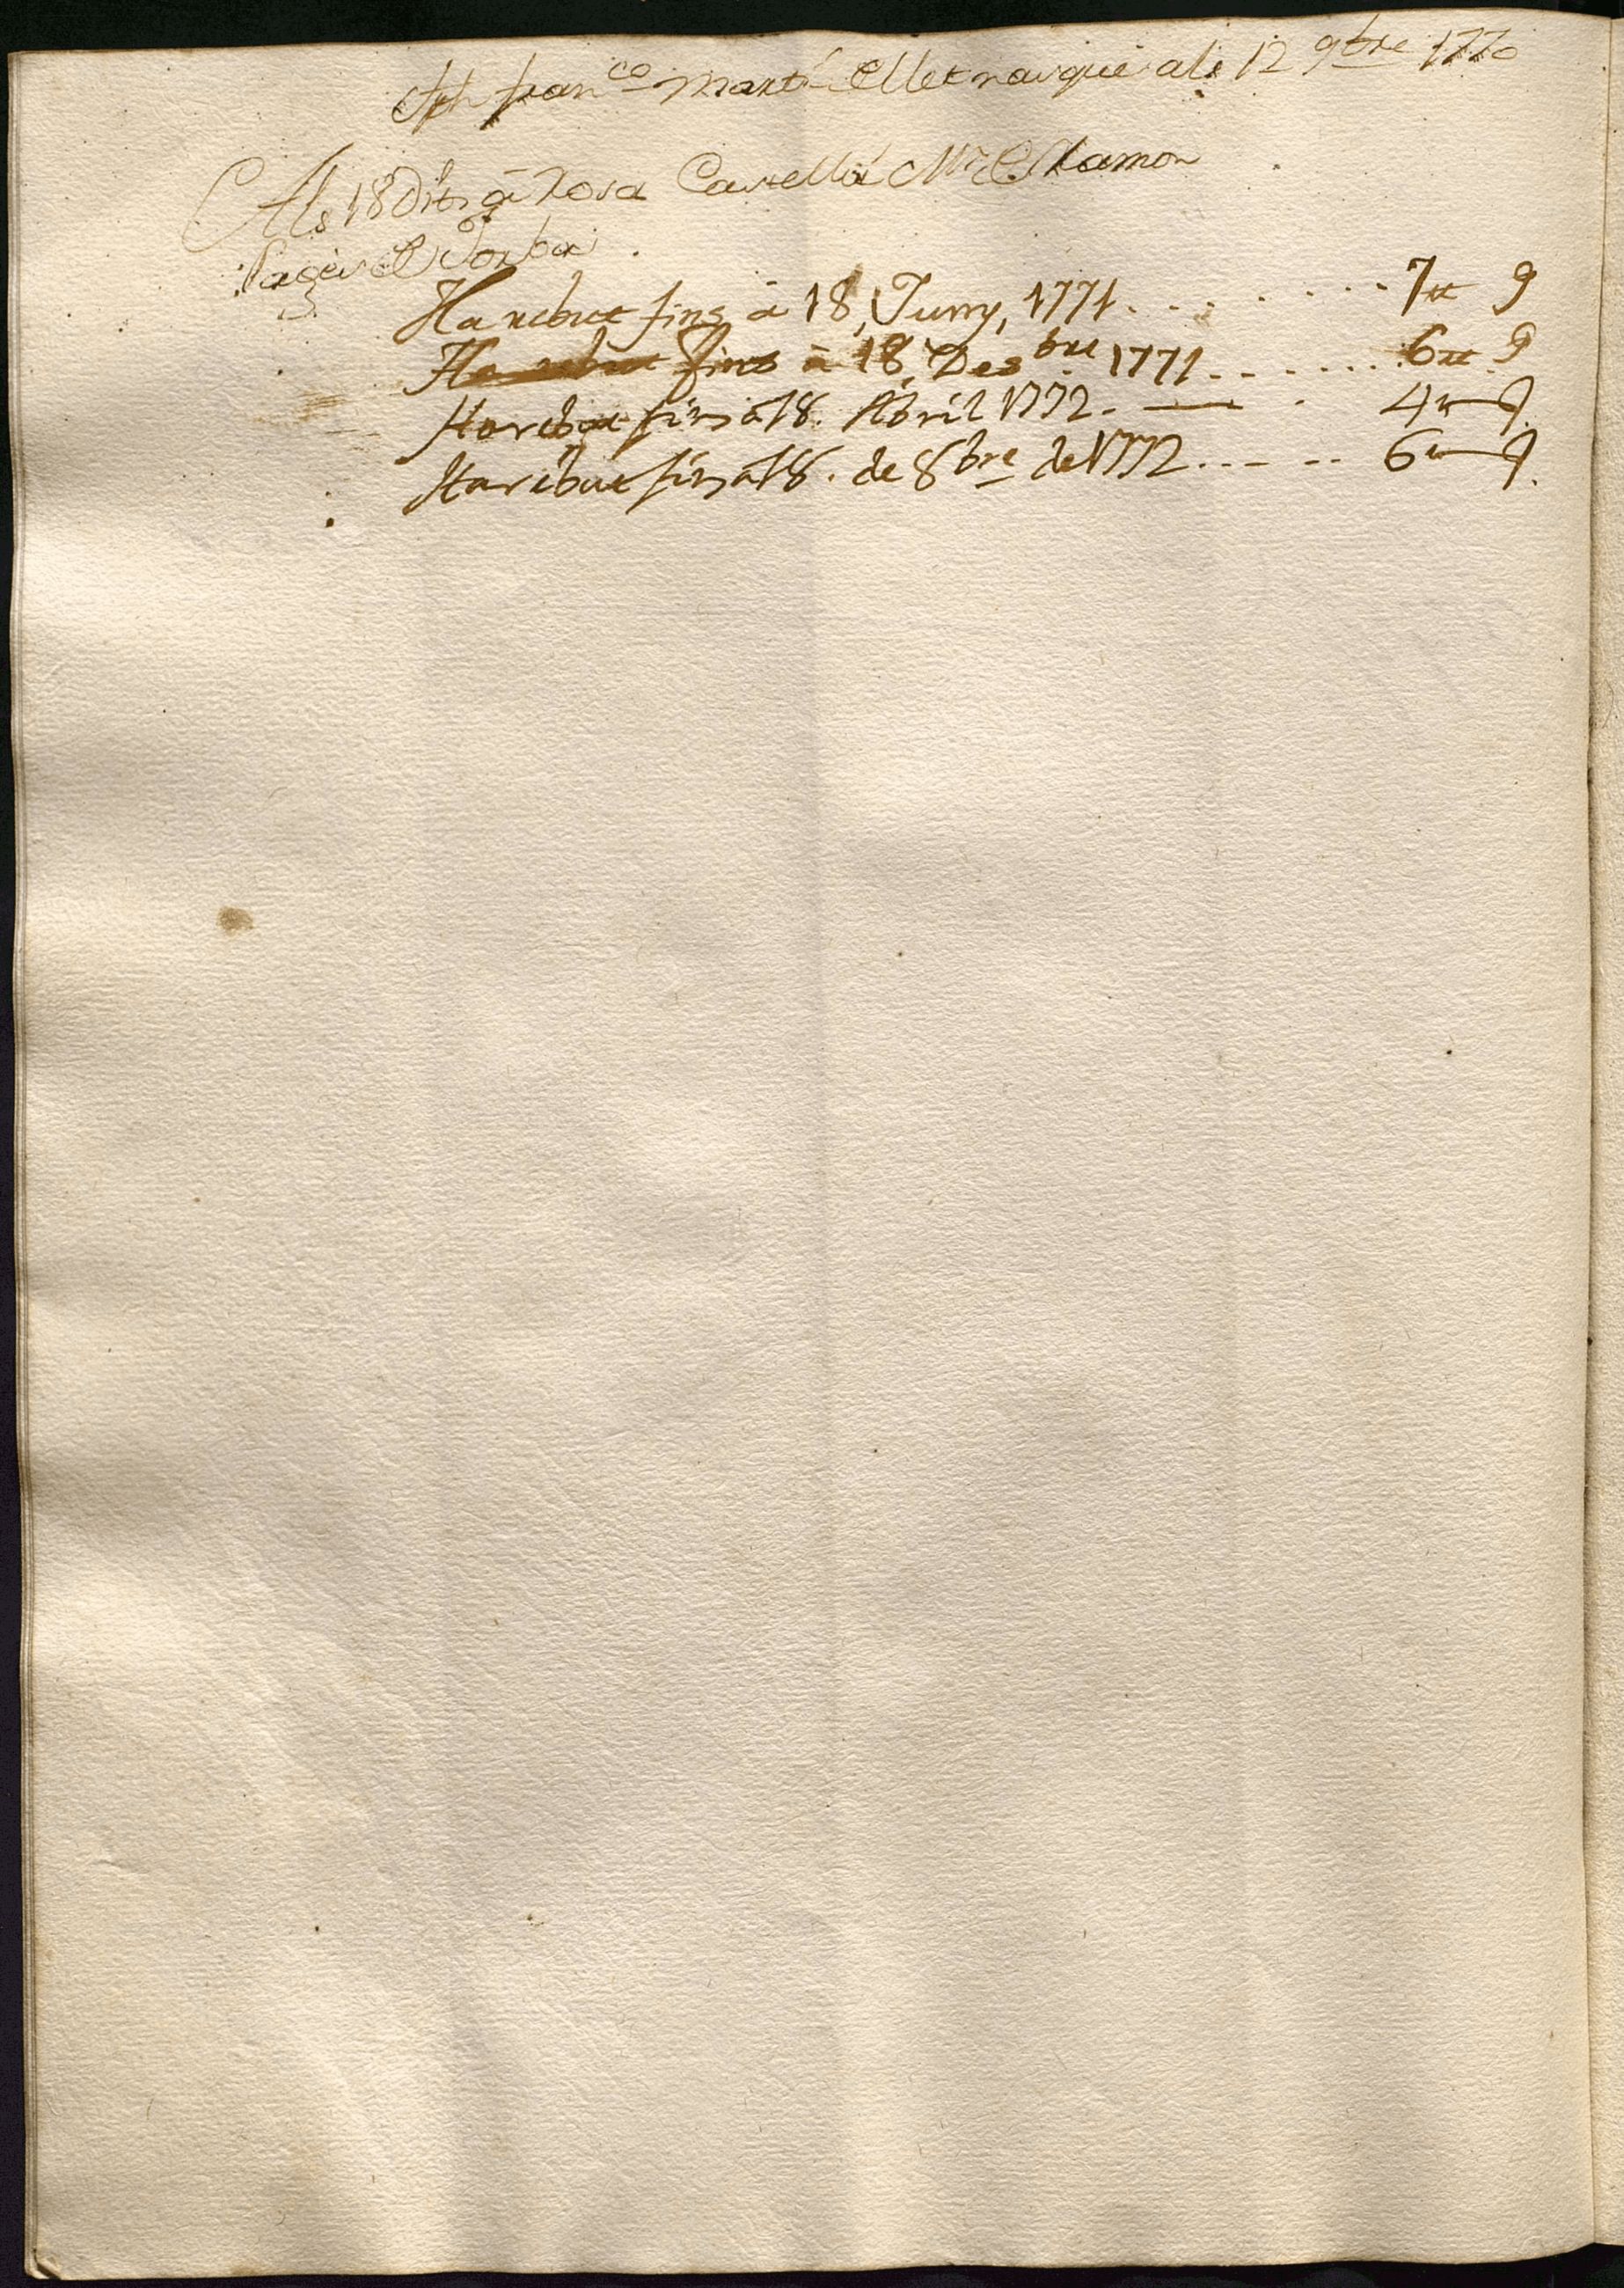 Jph fran^co Martí Ellet nasqué als 12 9bre 1770
Als 18 Dits à Rosa Casellá Mr Ramon
Pagès de Jorba
Ha rebut fins à 18, Juny, 1771 . . . . . . . 7 ₶ 9
Ha rebut fins à 18, Des^bre 1771 . . . . . . . 6 ₶ 9
Ha rebut fins a 18. Abril 1772. — . 4 ₶ — 9.
Ha rebut fins a 18. de 8^bre de 1772 . . — . . 6 ₶ — 9.